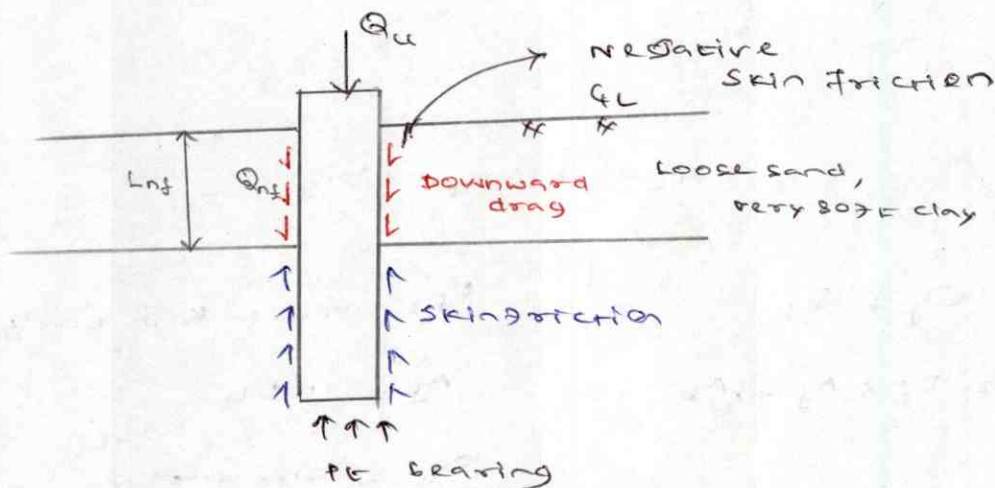 Qu
Negative
Skin Friction
GL
Lnf
Qnf
Downward
drag
Loose sand,
very soft clay
Skin friction
Pt bearing